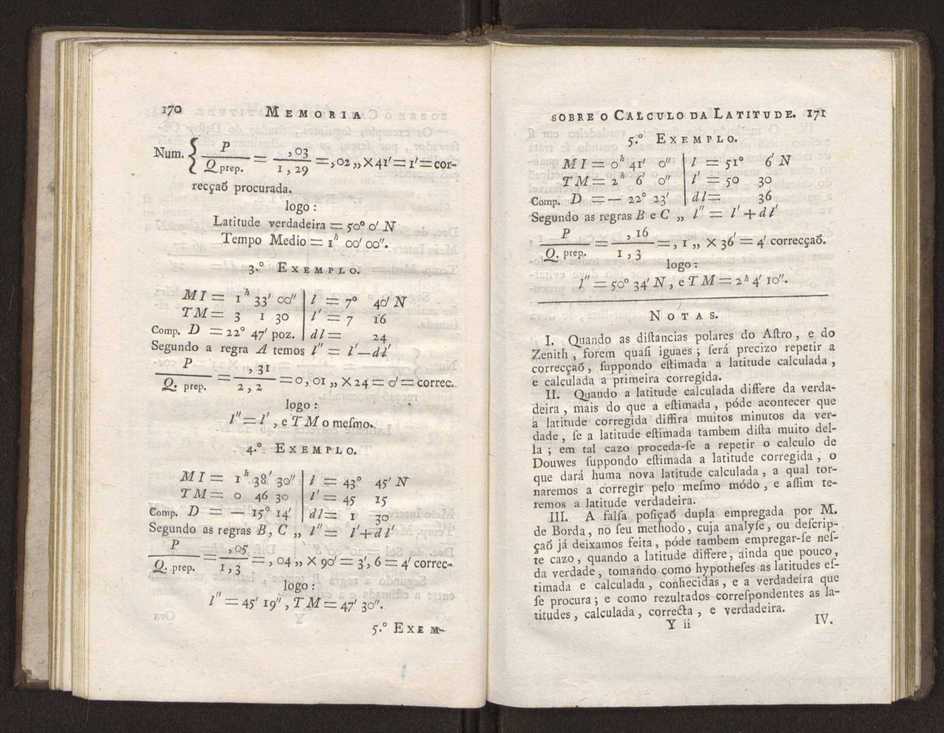 170 MEMORIA
Num. { P / Q prep. = ,03 / 1,29 = ,02 ,, × 41′ = 1′ = cor-
recçaõ procurada.
logo :
Latitude verdadeira = 50° 0′ N
Tempo Medio = 1ʰ 00′ 00″.
3.° EXEMPLO.
MI = 1ʰ 33′ 00″ | l = 7° 40′ N
TM = 3 1 30 | l′ = 7 16
Comp. D = 22° 47′ poz. | dl = 24
Segundo a regra A temos l″ = l′ — dl′
P / Q. prep. = ,31 / 2,2 = 0,01 ,, × 24 = 0′ = correc.
logo :
l″ = l′ , e TM o meſmo.
4.° EXEMPLO.
MI = 1ʰ 38′ 30″ | l = 43° 45′ N
TM = 0 46 30 | l′ = 45 15
Comp. D = — 15° 14′ | dl = 1 30
Segundo as regras B, C ,, l″ = l′ + dl′
P / Q. prep. = ,05 / 1,3 = ,04 ,, × 90′ = 3′,6 = 4′ correc-
logo :
l″ = 45′ 19″ , TM = 47′ 30″.
5.° EXEM-
SOBRE O CALCULO DA LATITUDE. 171
5.° EXEMPLO.
MI = 0ʰ 41′ 0″ | l = 51° 6′ N
TM = 2ʰ 6′ 0″ | l′ = 50 30
Comp. D = — 22° 23′ | dl = 36
Segundo as regras B e C ,, l″ = l′ + dl′
P / Q. prep. = ,16 / 1,3 = ,1 ,, × 36′ = 4′ correcçaõ.
logo :
l″ = 50° 34′ N , e TM = 2ʰ 4′ 10″.
NOTAS.
I. Quando as diſtancias polares do Aſtro, e do
Zenith, forem quaſi iguaes ; ſerá precizo repetir a
correcçaõ, ſuppondo eſtimada a latitude calculada,
e calculada a primeira corregida.
II. Quando a latitude calculada differe da verda-
deira, mais do que a eſtimada, póde acontecer que
a latitude corregida diffira muitos minutos da ver-
dade, ſe a latitude eſtimada tambem diſta muito del-
la ; em tal cazo proceda-ſe a repetir o calculo de
Douwes ſuppondo eſtimada a latitude corregida, o
que dará huma nova latitude calculada, a qual tor-
naremos a corregir pelo meſmo módo, e aſſim te-
remos a latitude verdadeira.
III. A falſa poſiçaõ dupla empregada por M.
de Borda, no ſeu methodo, cuja analyſe, ou deſcrip-
çaõ já deixamos feita, póde tambem empregar-ſe neſ-
te cazo, quando a latitude differe, ainda que pouco,
da verdade, tomando como hypotheſes as latitudes eſ-
timada e calculada, conhecidas, e a verdadeira que
ſe procura ; e como rezultados correſpondentes as la-
titudes, calculada, correcta, e verdadeira.
Y ii IV.